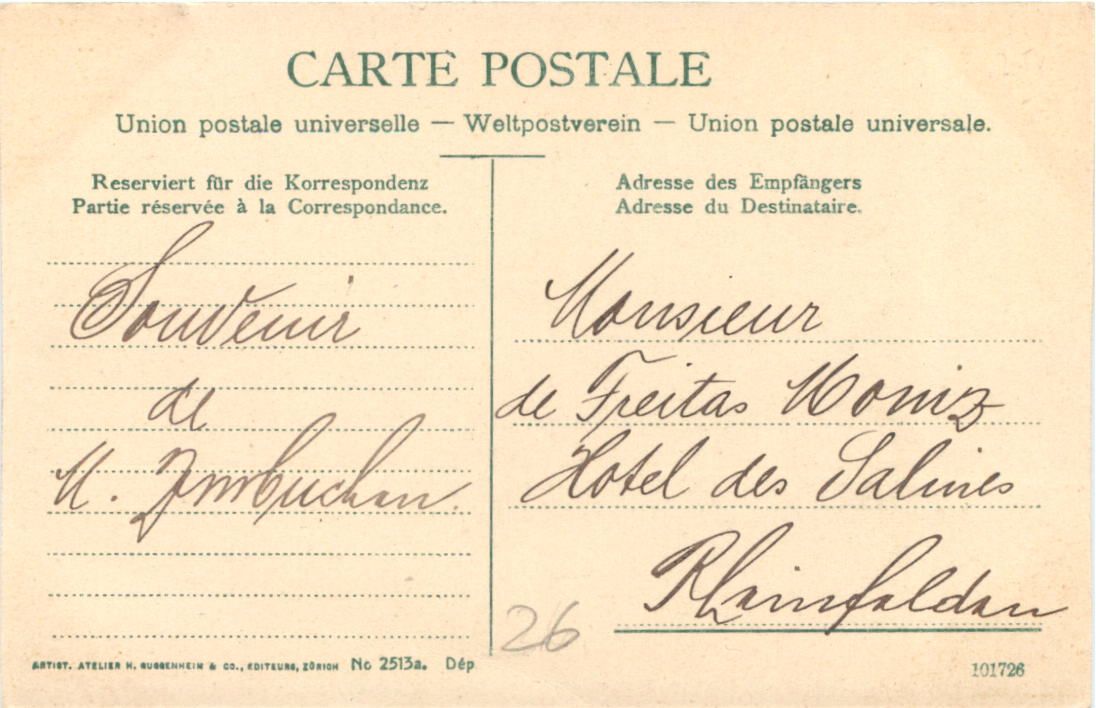 CARTE POSTALE
Union postale universelle — Weltpostverein — Union postale universale.
Reserviert für die Korrespondenz
Partie réservée à la Correspondance.
Souvenir
de
M. Imbuchen.
Adresse des Empfängers
Adresse du Destinataire.
Monsieur
de Freitas Moniz
Hotel des Salines
Rheinfelden
26
ARTIST. ATELIER H. GUGGENHEIM & CO., EDITEURS, ZÜRICH No 2513a. Dép
101726